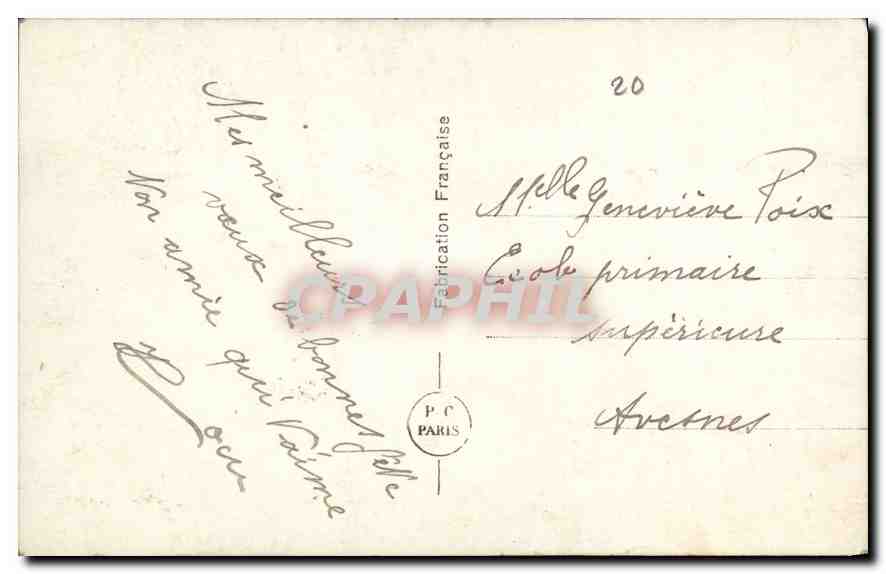 Mes meilleurs
vœux de bonnes fête
Ton amie qui t'aime
20
Melle Geneviève Poix
Ecole primaire
supérieure
Avesnes
Fabrication Française
P. C
PARIS
CPAPHIL